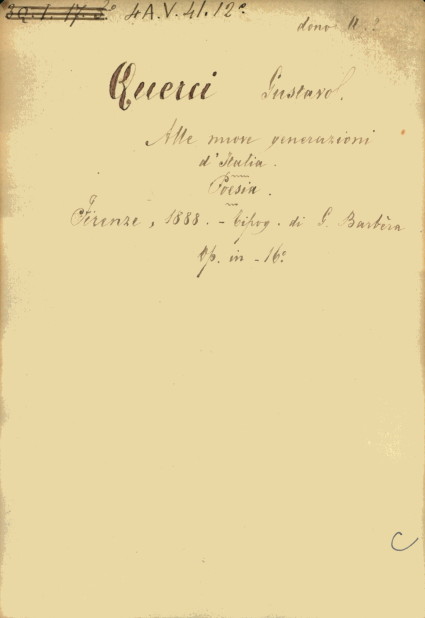 4 A.V. 41.12º
dono
Querci Gustavo.
Alle nuove generazioni
d'Italia.
Poesia.
Firenze, 1888. - Tipog. di G. Barbèra
Op. in - 16º
C